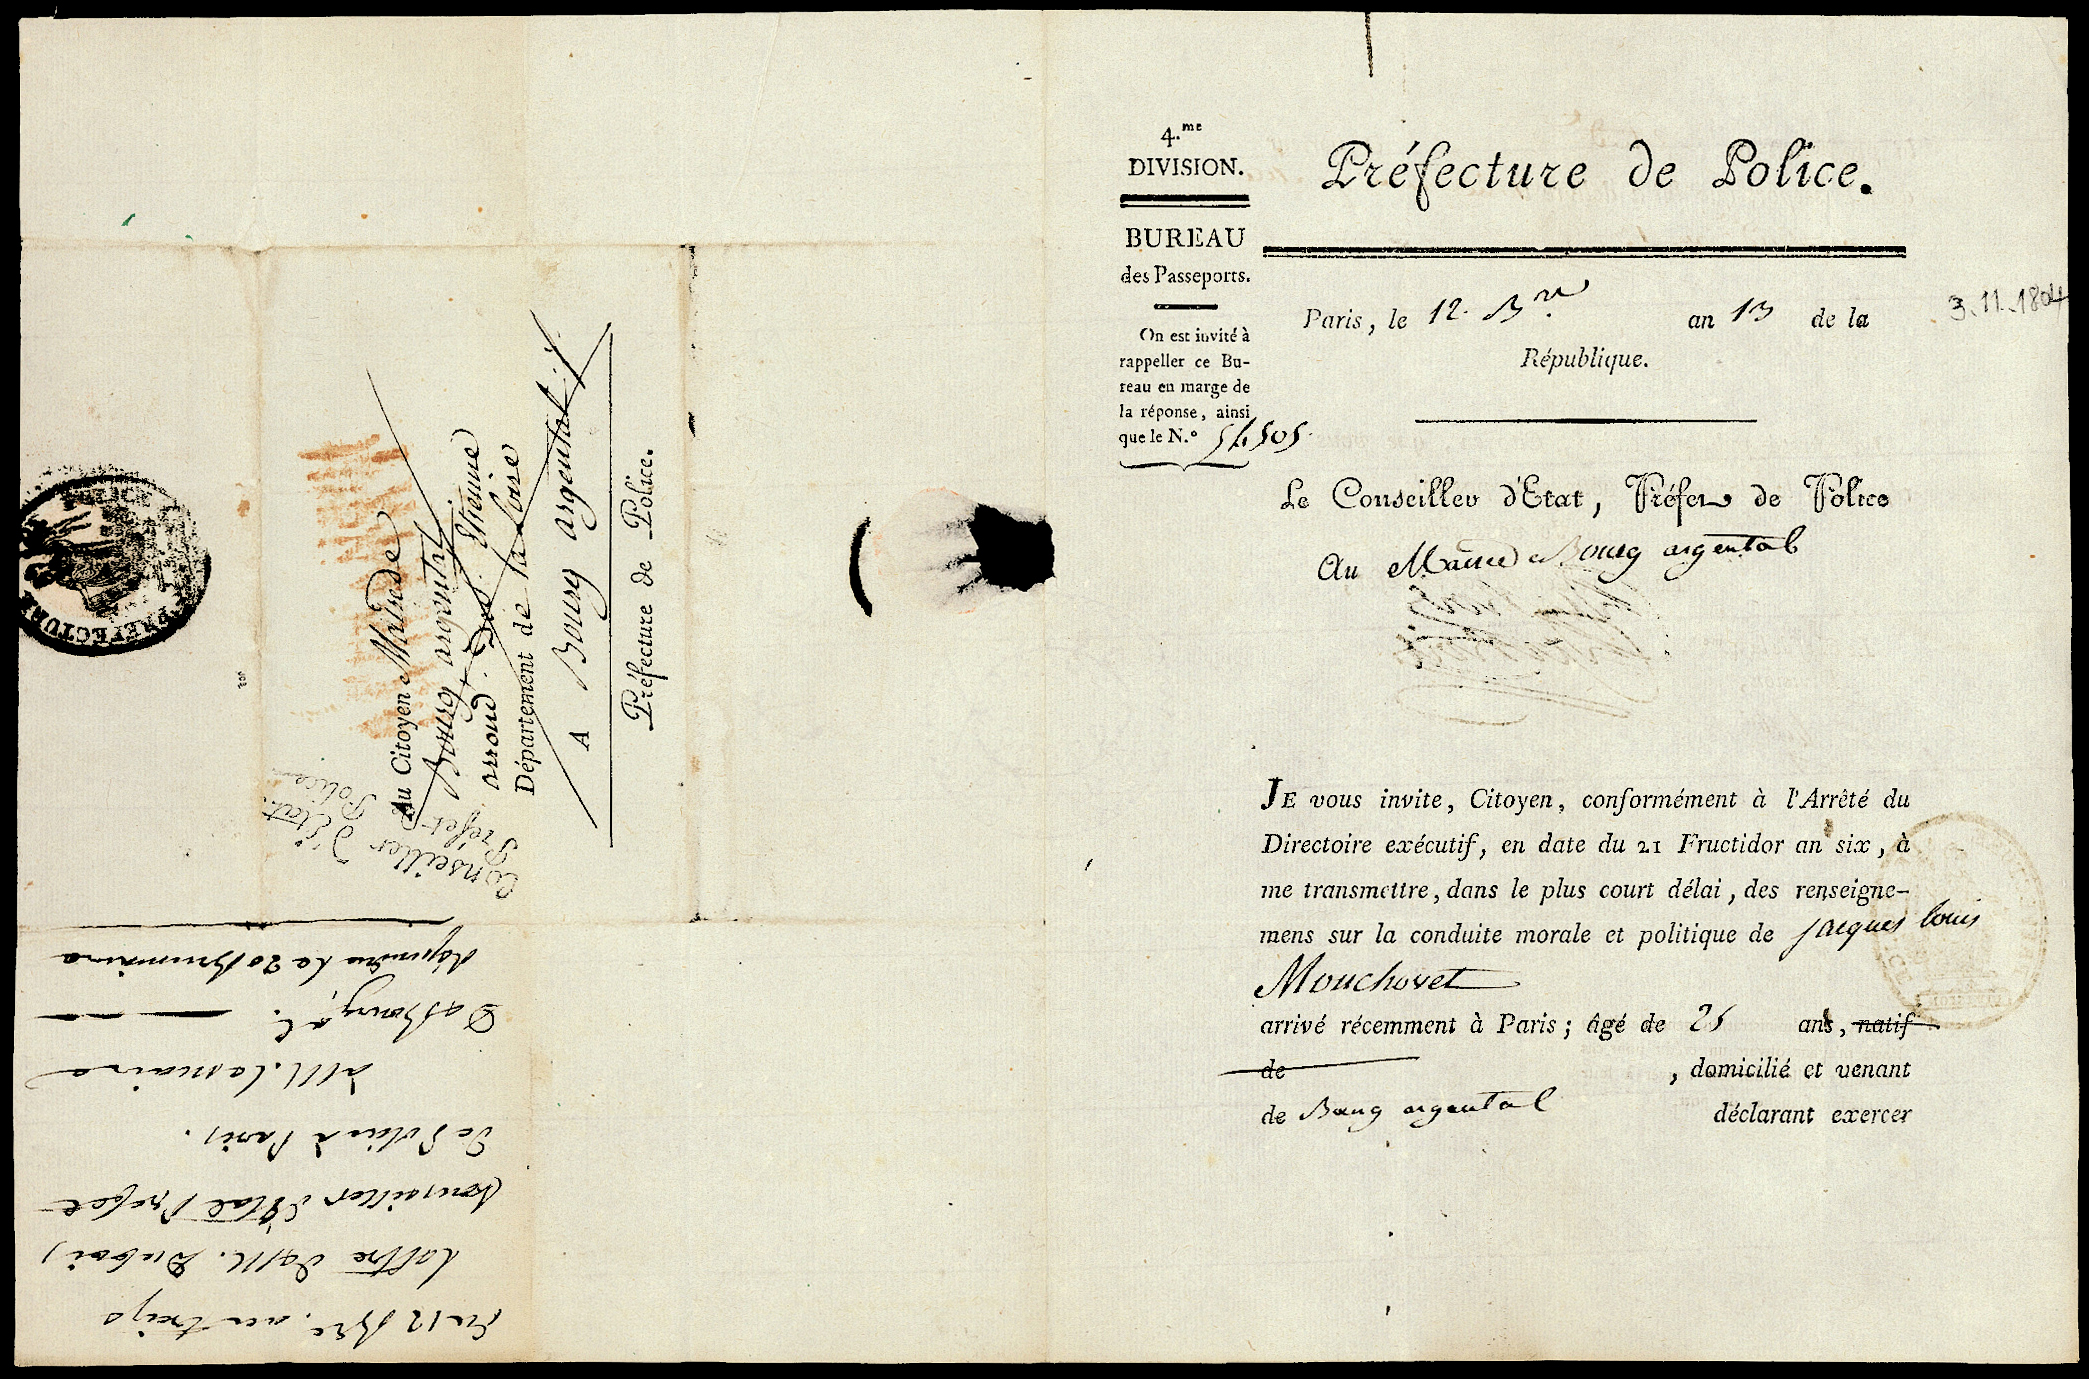 4.me
DIVISION.
BUREAU
des Passeports.
On est invité à
rappeller ce Bu-
reau en marge de
la réponse, ainsi
que le N.o 54505.
Préfecture de Police.
Paris, le 12. Bre. an 13 de la
République.
3.11.1804
Le Conseiller d'Etat, Préfet de Police
Au Maire de Bourg argental
JE vous invite, Citoyen, conformément à l'Arrêté du
Directoire exécutif, en date du 21 Fructidor an six, à
me transmettre, dans le plus court délai, des renseigne-
mens sur la conduite morale et politique de jacques louis
Mouchovet
arrivé récemment à Paris; âgé de 25 ans, natif
de , domicilié et venant
de Bourg argental déclarant exercer
Au Citoyen Maire de
Bourg argental
arrond. de St. Etienne
Département de la Loire
A Bourg argental
Préfecture de Police.
Conseiller d'Etat.
Préfet Police
PREFECTURE
Du 12 Bre. an treize
Lettre de M. Dubois,
Conseiller d'Etat Prefet
de Police à Paris.
à M. le maire
De Bourg.al.
répondu le 20 Brumaire